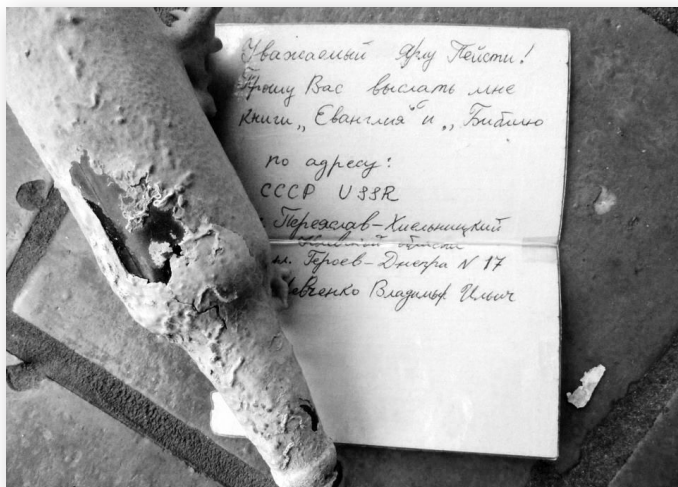 Уважаемый Яру Пейсти!
Прошу Вас выслать мне
книги „Еванглия“ и „Библию
по адресу:
СССР USSR
Переяслав-Хмельницкий
области
Героев-Днепра N 17
Владимир Ильич